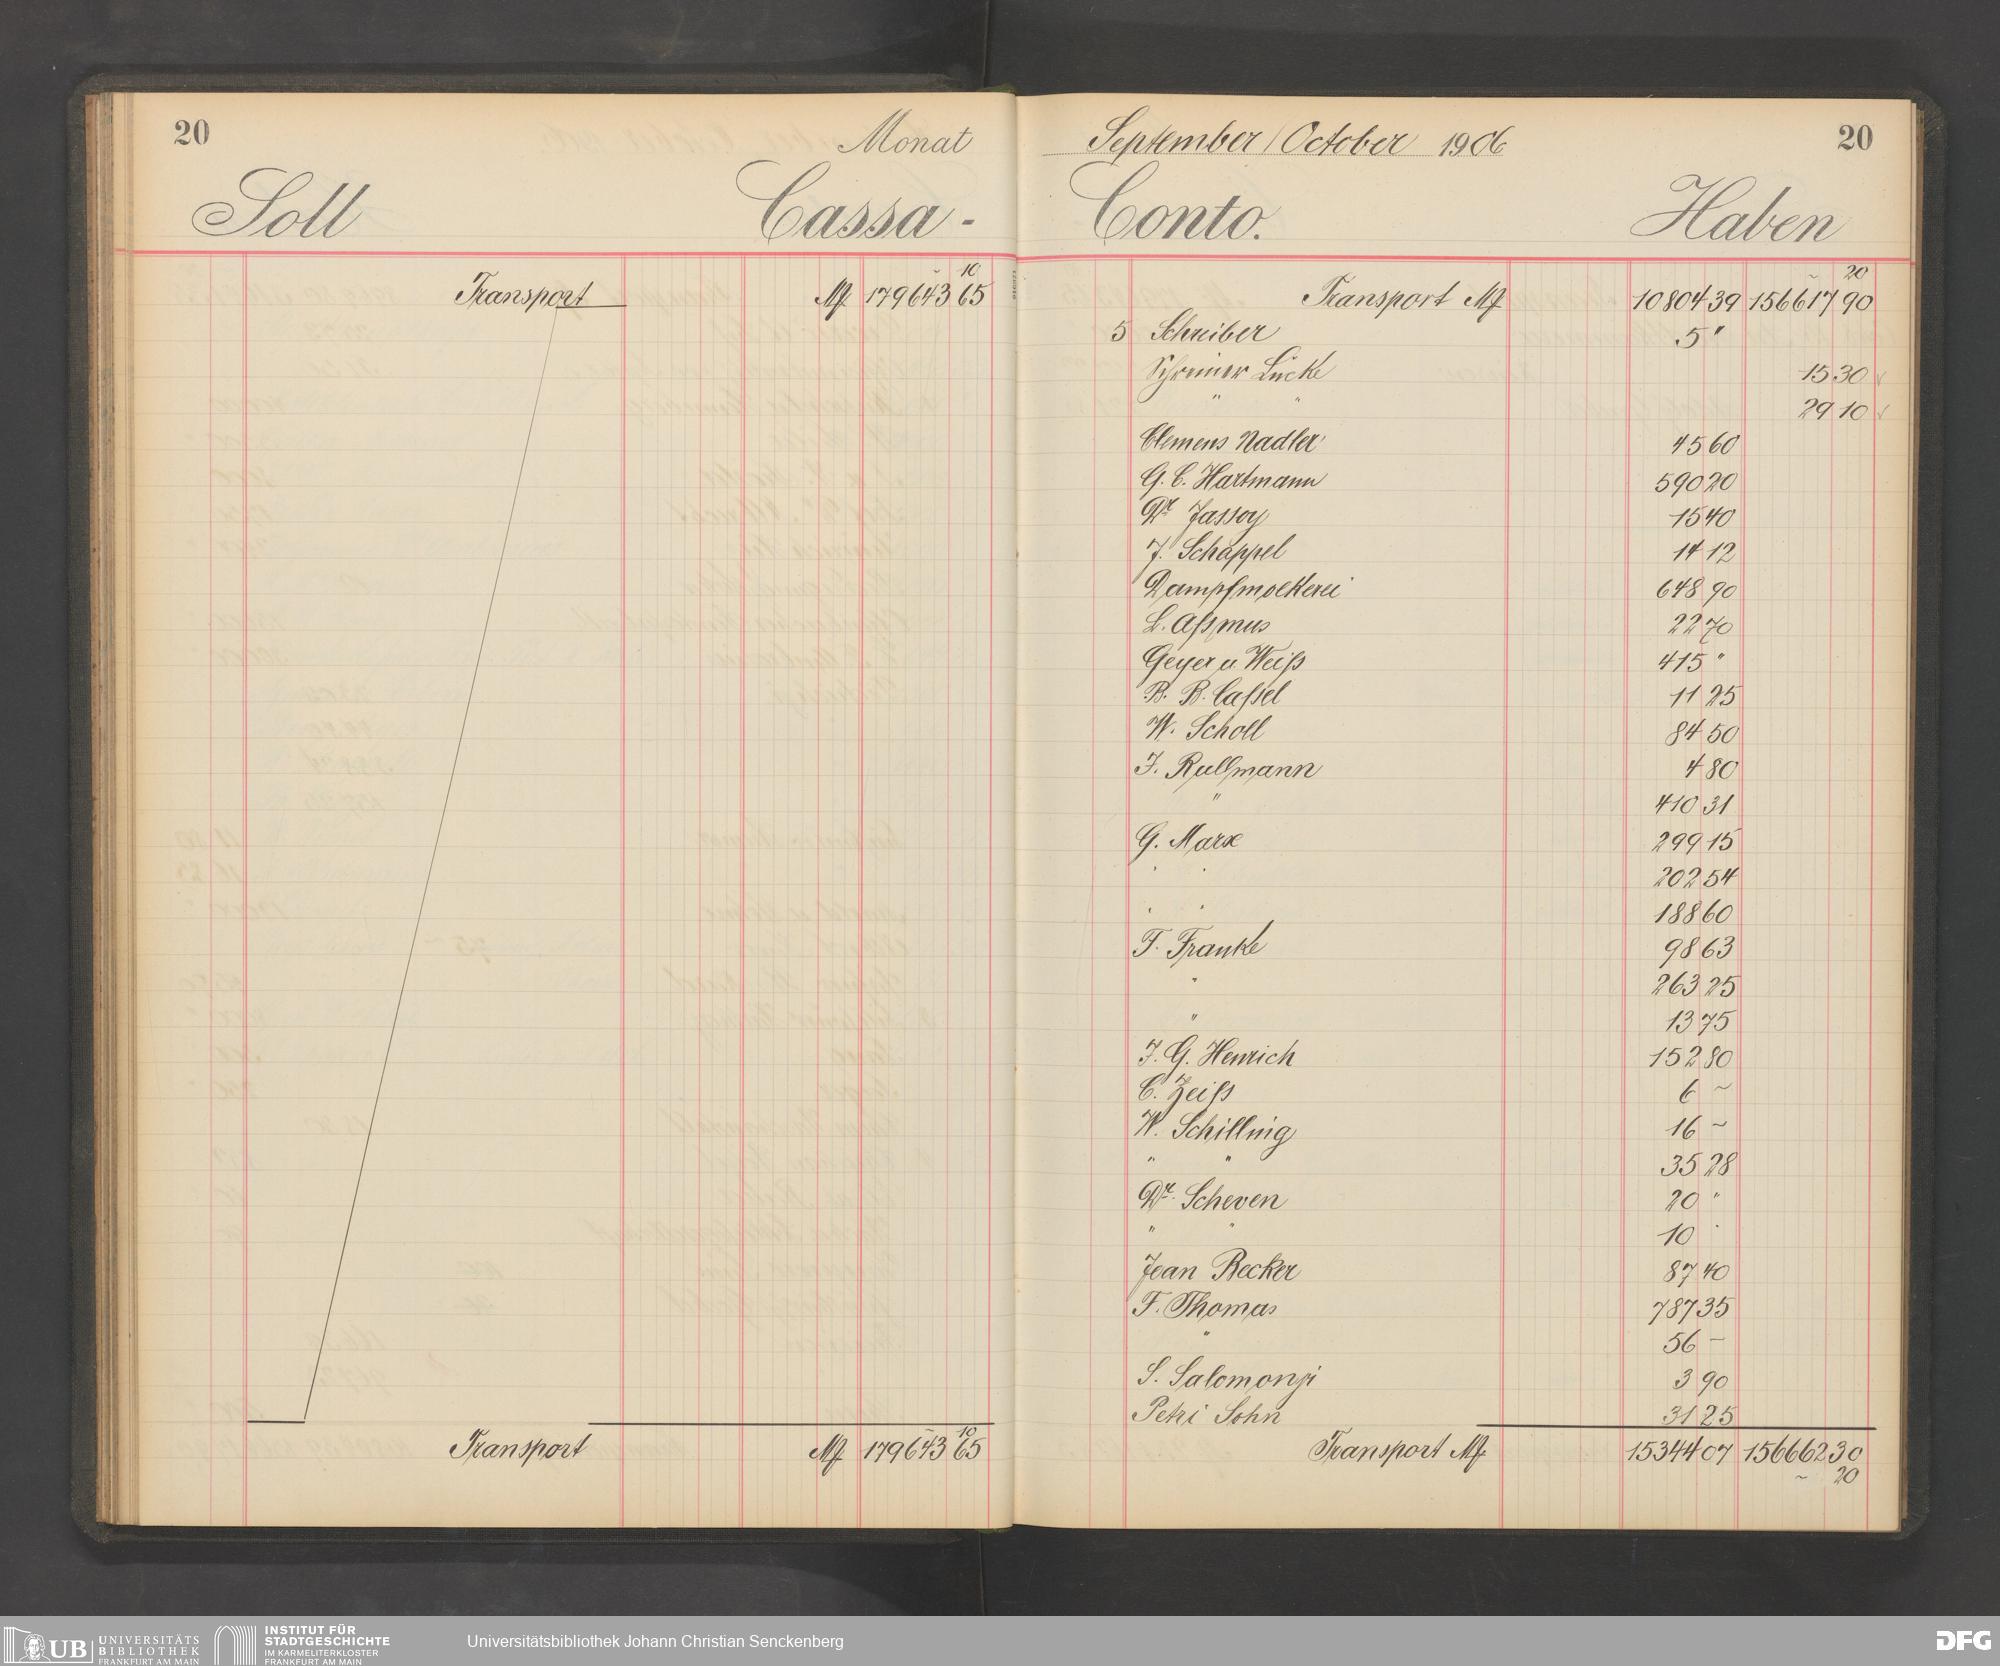 20
Monat
Soll Cassa-
10
Transport M 179643 65
Transport M 179643 65
10
September/October 1906
20
Conto. Haben
20
Transport M 10804 39 156617 90
5 Schreiber 5 "
Schreiner Lücke 15 30
" " 29 10
Clemens Nadler 45 60
G. C. Hartmann 590 20
Dr. Jassoy 15 40
J. Schappel 14 12
Dampfmolkerei 648 90
L. Aßmus 22 70
Geyer u. Weiß 415 "
B. B. Caßel 11 25
W. Scholl 84 50
J. Rullmann 4 80
" 410 31
G. Marx 299 15
" " 202 54
" " 188 60
F. Franke 98 63
" 263 25
" 13 75
J. G. Henrich 152 80
C. Zeiß 6 ~
W. Schilling 16 ~
" " 35 28
Dr. Scheven 20 "
" " 10 "
Jean Becker 87 40
F. Thomas 787 35
" 56 –
S. Salomonji 3 90
Petri Sohn 31 25
Transport M 15344 07 156662 30
~ 20
UB UNIVERSITÄTS
BIBLIOTHEK
FRANKFURT AM MAIN
INSTITUT FÜR
STADTGESCHICHTE
IM KARMELITERKLOSTER
FRANKFURT AM MAIN
Universitätsbibliothek Johann Christian Senckenberg
DFG